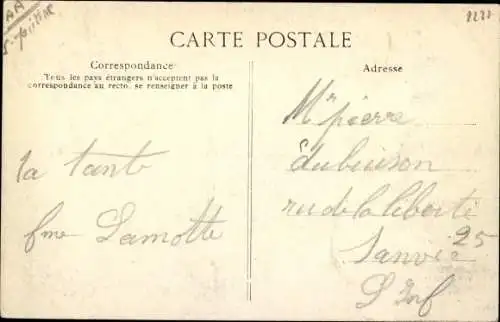 AA
CARTE POSTALE
Correspondance
Tous les pays étrangers n'acceptent pas la
correspondance au recto, se renseigner à la poste
la tante
fme Lamotte
Adresse
Mr pierre
dubuisson
ru de la liberté
25
Sanvic
S Inf